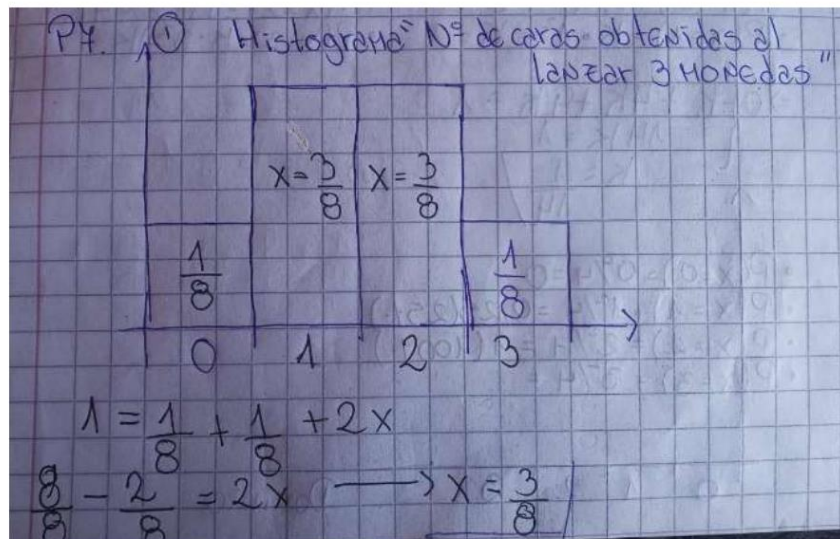 P7. ① Histograma "Nº de caras obtenidas al
lanzar 3 monedas"
x = 3/8 x = 3/8
1/8 1/8
0 1 2 3
1 = 1/8 + 1/8 + 2x
8/8 - 2/8 = 2x → x = 3/8